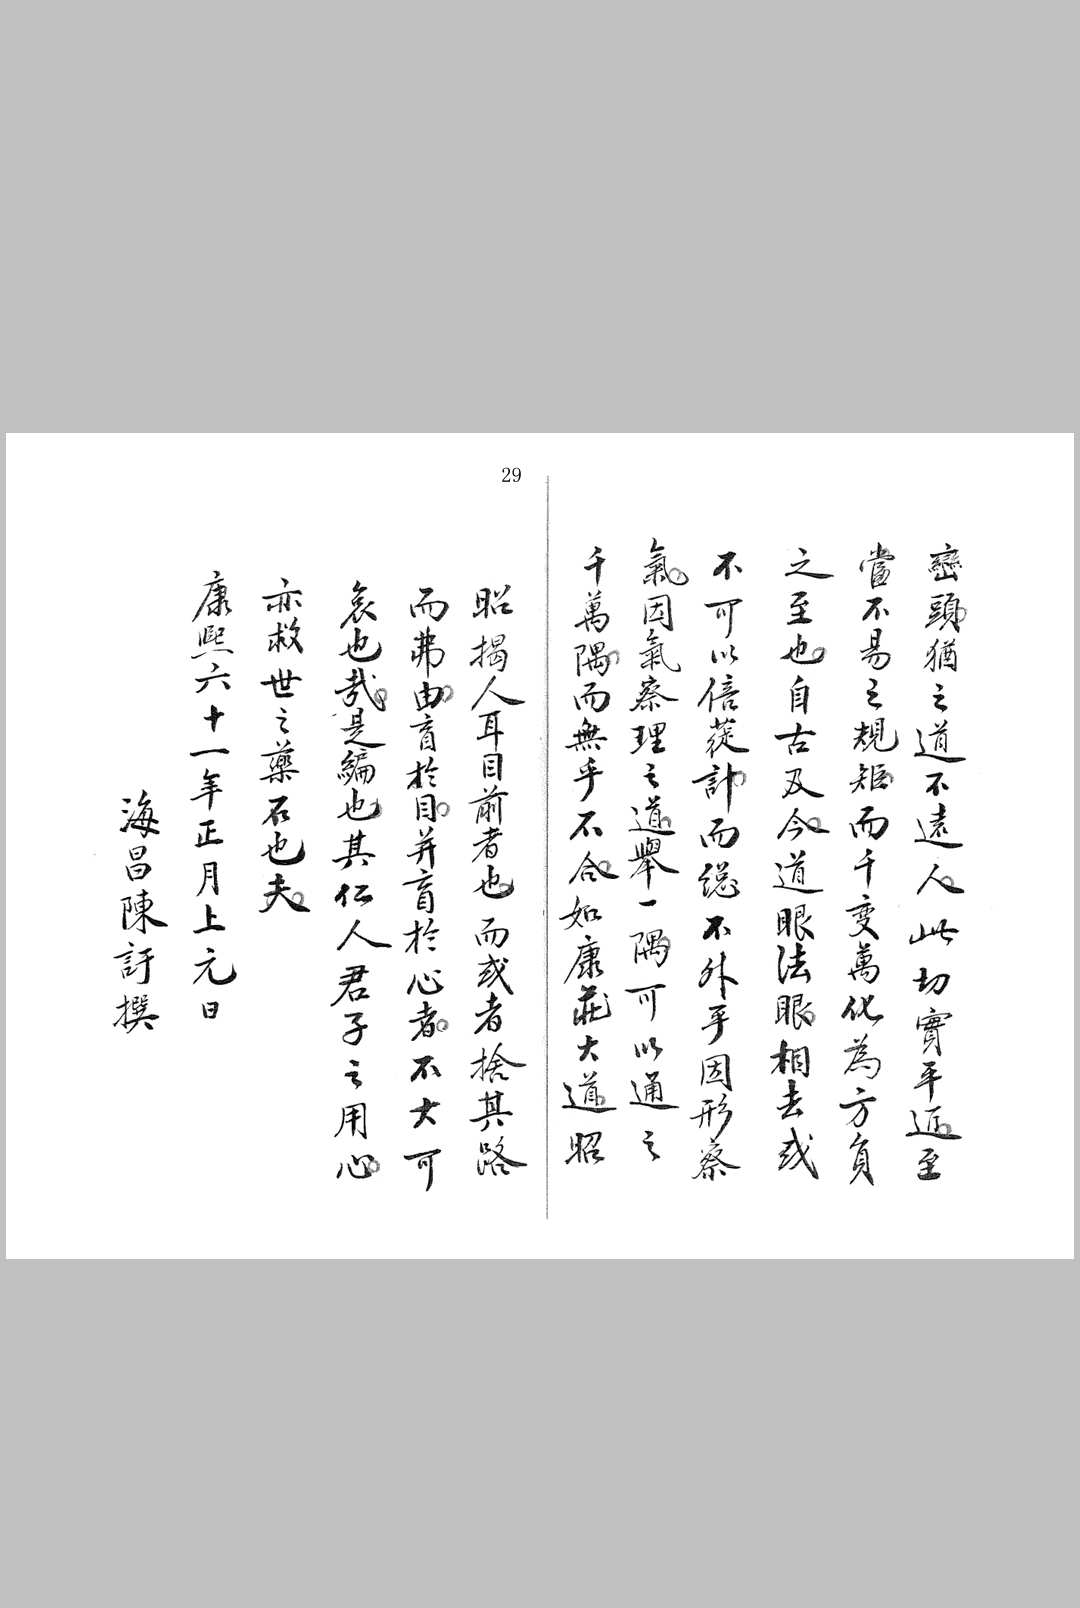 29
巒頭猶之道不遠人此切實平近至
當不易之規矩而千變萬化為方負
之至也自古及今道眼法眼相去或
不可以倍蓰計而總不外乎因形察
氣因氣察理之道舉一隅可以通之
千萬隅而無乎不合如康莊大道昭
昭揭人耳目前者也而或者捨其路
而弗由盲於目并盲於心者不大可
哀也哉是編也其仁人君子之用心
亦救世之藥石也夫
康熙六十一年正月上元日
海昌陳訏撰